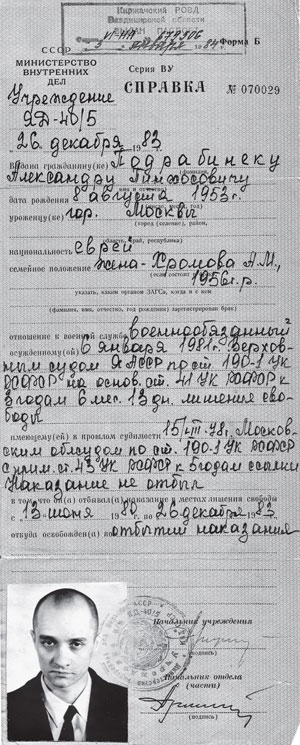 Киржачский РОВД
Владимирской области
VI-НА 679306
3 января 1984 Форма Б
СССР
МИНИСТЕРСТВО
ВНУТРЕННИХ
ДЕЛ
Серия ВУ
СПРАВКА № 070029
Учреждение
ЯД-40/5
26 декабря 1983
Выдана гражданину(ке) Подрабинеку
Александру Пинхосовичу
дата рождения 8 августа 1953г.
уроженцу(ке) гор. Москвы
(город (селение), район,
область, край, республика)
национальность еврей
семейное положение жена-Хромова А.М.,
(если состоит 1956г.р.
указать, каким органом ЗАГСа, когда и с кем
(фамилия, имя, отчество, год рождения) зарегистрирован брак)
отношение к военной службе военнообязанный
осужденному(ой) 6 января 1981г. Верхов-
ным судом ЯАССР по ст. 190-1 УК
РСФСР на основ. ст. 41 УК РСФСР к
3 годам 6 мес. 13 дн. лишения сво-
боды
имеющему(ей) в прошлом судимости 15/VIII-78г. Москов-
ским облсудом по ст. 190-1 УК РСФСР
с прим. ст. 43 УК РСФСР к 5 годам ссылки
Наказание не отбыл
в том что он(а) отбывал(а) наказание в местах лишения свободы
с 13 июня 1980 г. по 26 декабря 1983
откуда освобожден(а) по отбытии наказания
Начальник учреждения
(подпись)
Начальник отдела
(части)
(подпись)